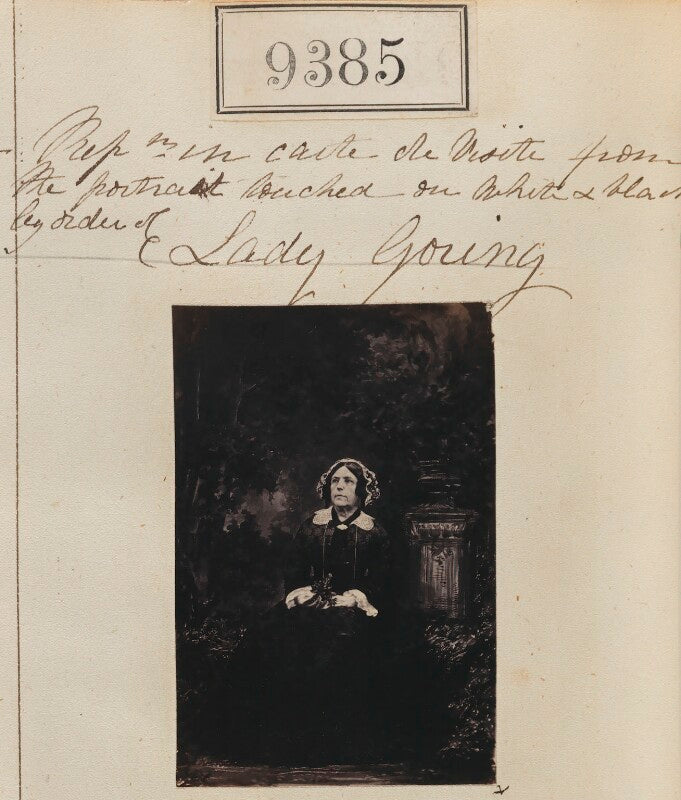 9385
Rep n in carte de Visite from
the portrait touched on White & black
by order of
Lady Goring